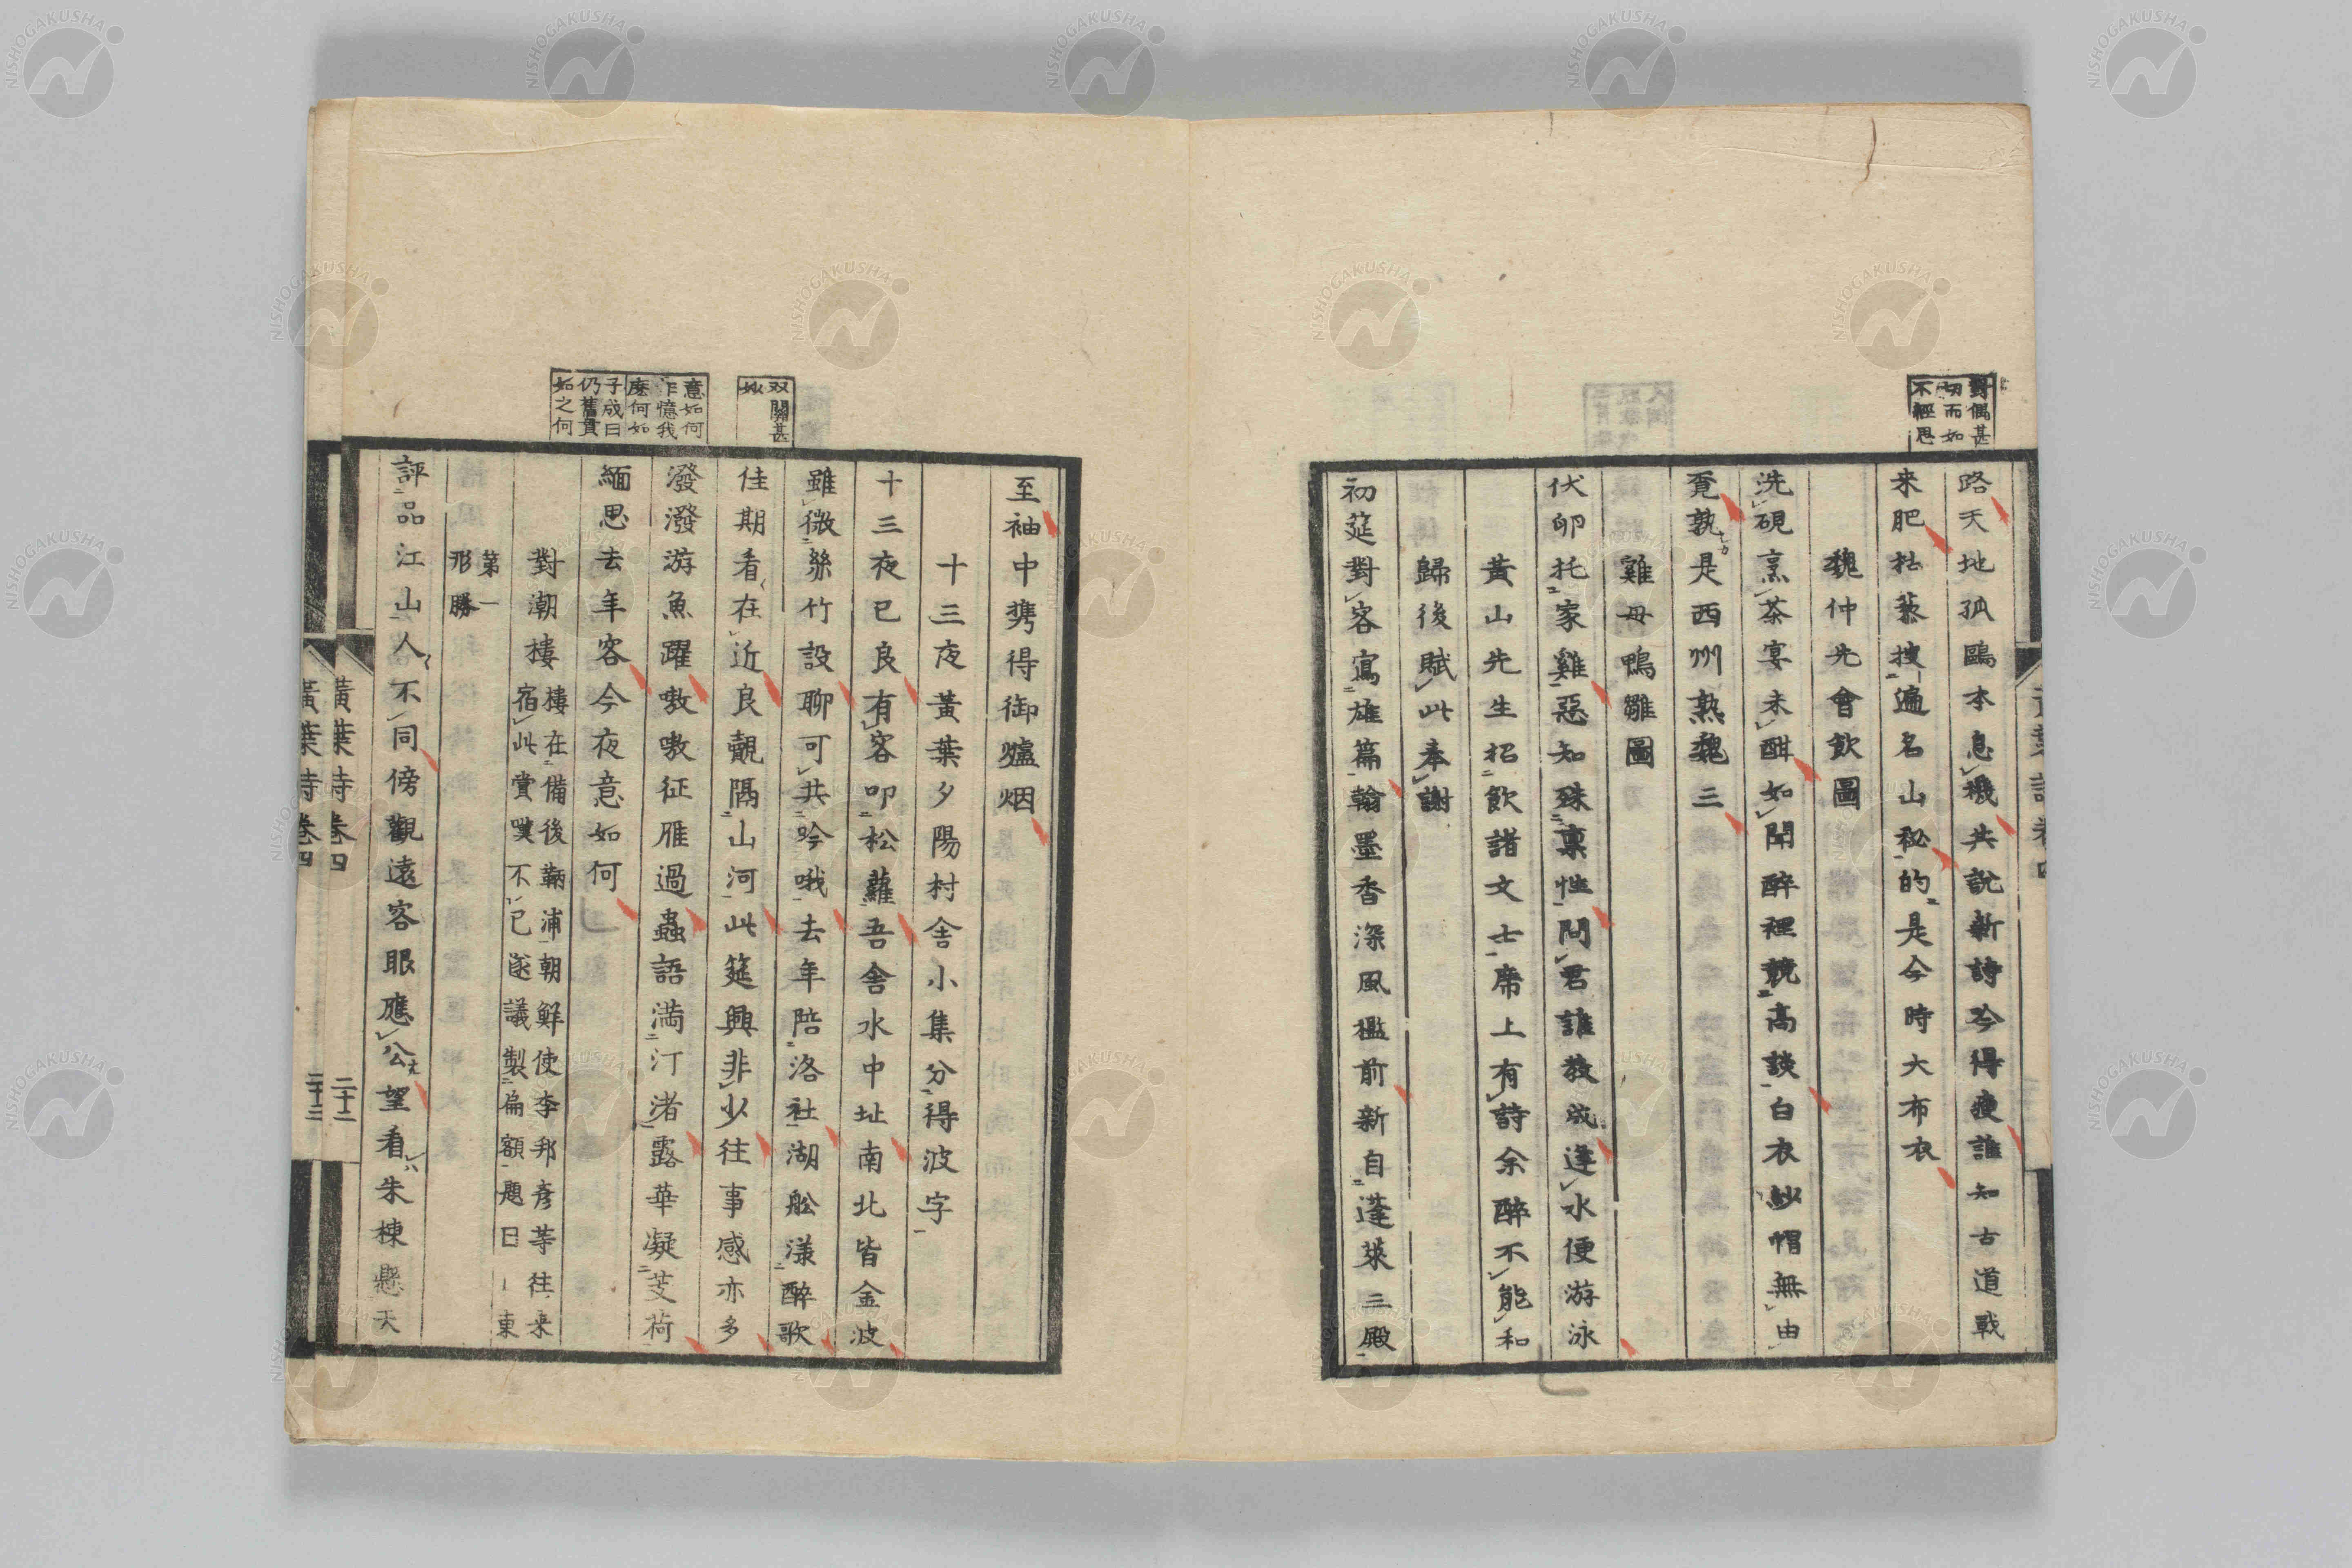 對偶甚
切而如
不經思
路天地孤鷗本息機共說新詩吟得瘦誰知古道戰
来肥枯藜搜遍名山秘的是今時大布衣
魏仲先會飲圖
洗硯烹茶宴未酣如聞醉裡競高談白衣紗帽無由
覔孰是西州熟魏三
雞母鴨雛圖
伏卵托家雞惡知殊稟性問君誰教成逢水便游泳
黃山先生招飲諸文士席上有詩余醉不能和
歸後賦此奉謝
初筵對客寫雄篇翰墨香深風檻前新自蓬萊三殿
双關甚
妙
意如何
作憶我
麼何如
子成曰
仍舊貫
如之何
至袖中携得御爐烟
十三夜黃葉夕陽村舍小集分得波字
十三夜已良有客叩松蘿吾舍水中址南北皆金波
雖微絲竹設聊可共吟哦去年陪洛社湖舩漾醉歌
佳期看在近良覿隔山河此筵興非少往事感亦多
潑潑游魚躍嗷嗷征雁過蟲語滿汀渚露華凝芰荷
緬思去年客今夜意如何
對潮樓
樓在備後鞆浦朝鮮使李邦彥等往来
宿此賞嘆不已遂議製扁額題曰日東
第一
形勝
評品江山人不同傍觀遠客眼應公望看朱棟懸天
黃葉詩卷四
二十二
黃葉詩卷四
二十三
NISHOGAKUSHA